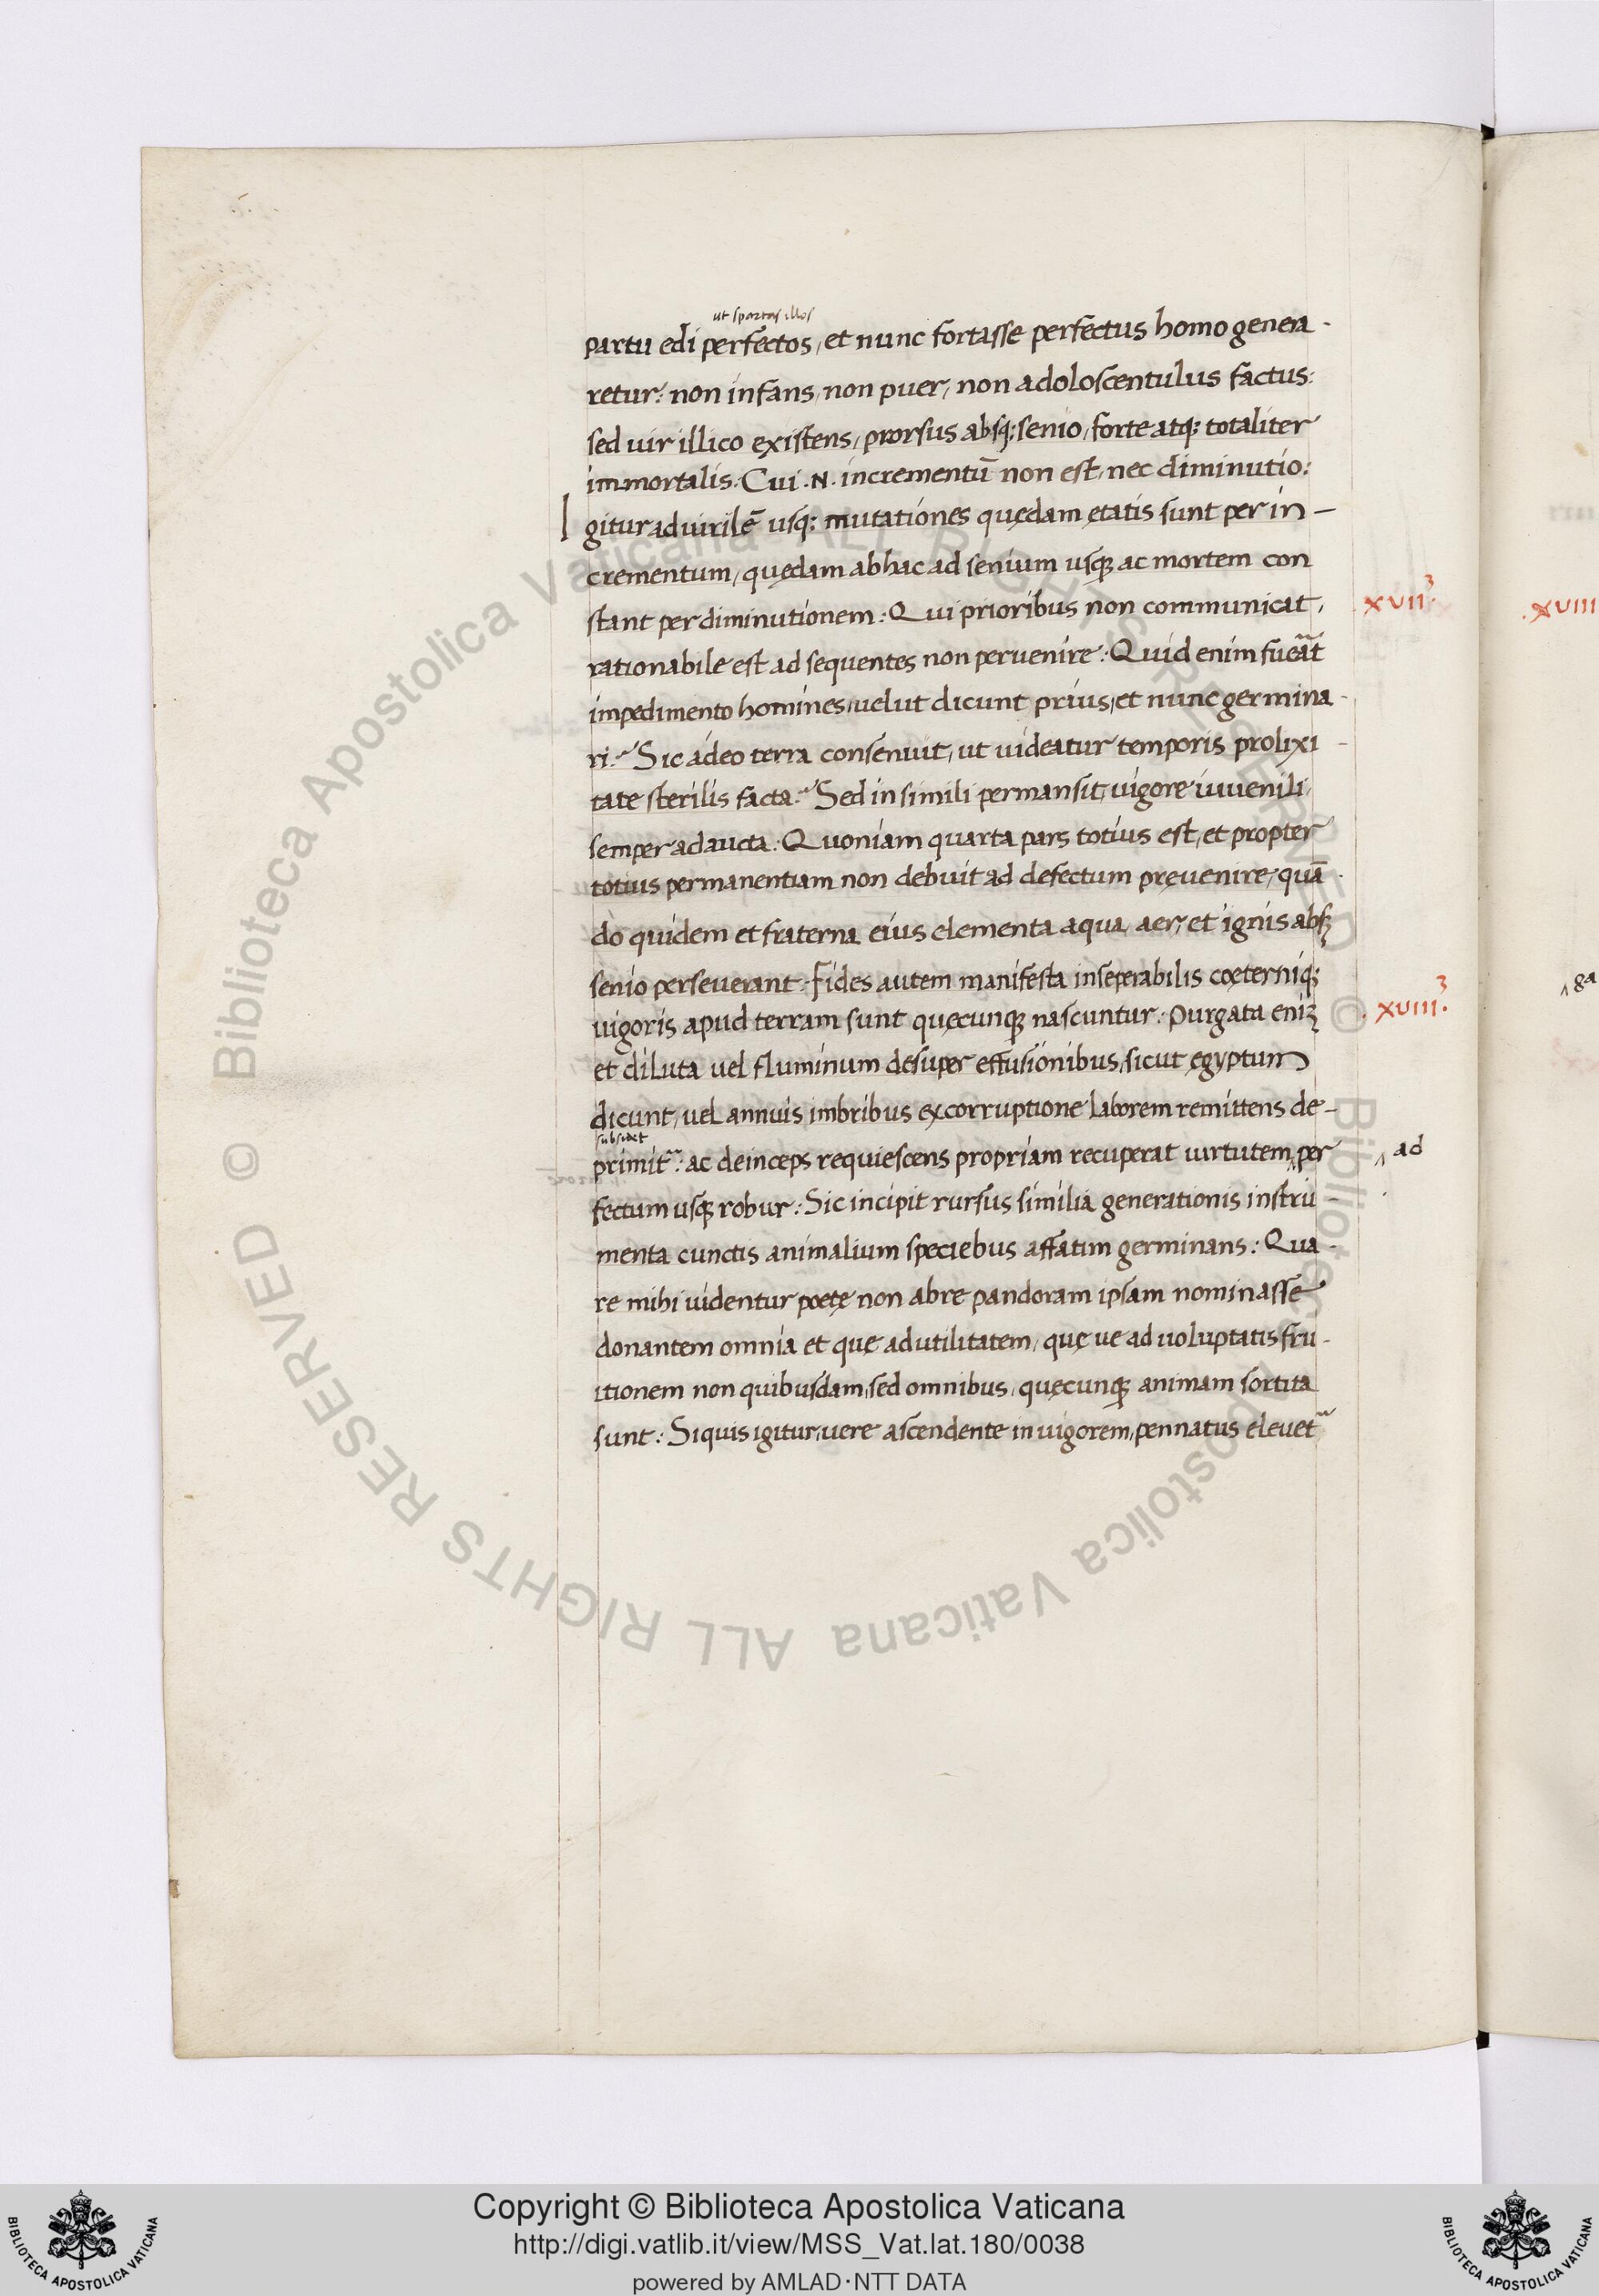 ut spartas illos
partu edi perfectos, et nunc fortasse perfectus homo genera-
retur: non infans, non puer, non adoloscentulus factus:
sed uir illico existens, prorsus absq; senio, forte atq; totaliter
immortalis. Cui .N. incrementū non est, nec diminutio:
Igitur ad uirilē usq; mutationes quędam ętatis sunt per in-
crementum, quędam ab hac ad senium usq; ac mortem con
stant per diminutionem: Qui prioribus non communicat,
.XVII.³
rationabile est ad sequentes non peruenire: Quid enim fueāt
impedimento homines, uelut dicunt prius, et nunc germina-
ri? Sic adeo terra consenuit, ut uideatur temporis prolixi-
tate sterilis facta? Sed in simili permansit, uigore iuuenili,
semper adaucta: Quoniam quarta pars totius est, et propter
totius permanentiam non debuit ad defectum pręuenire, quā-
do quidem et fraterna eius elementa aqua, aer, et ignis absq;
senio perseuerant. Fides autem manifesta inseperabilis coęterniq;
.XVIII.³
uigoris apud terram sunt quęcunq; nascuntur: Purgata eniȝ
et diluta uel fluminum desuper effusionibus, sicut ęgyptum
dicunt, uel annuis imbribus ex corruptione laborem remittens de-
subsidet
primit: ac deinceps requiescens propriam recuperat uirtutem ‸per
‸ ad
fectum usq; robur: Sic incipit rursus similia generationis instru-
menta cunctis animalium speciebus affatim germinans: Qua-
re mihi uidentur poetę non abre pandoram ipsam nominasse
donantem omnia et quę ad utilitatem, quę ue ad uoluptatis fru-
itionem non quibusdam, sed omnibus, quęcunq; animam sortita
sunt: Siquis igitur, uere ascendente in uigorem, pennatus eleuet
.XVIII
‸ ga
© Biblioteca Apostolica Vaticana ALL RIGHTS RESERVED © Biblioteca Apostolica Vaticana ALL RIGHTS RESERVED
Copyright © Biblioteca Apostolica Vaticana
http://digi.vatlib.it/view/MSS_Vat.lat.180/0038
powered by AMLAD·NTT DATA
BIBLIOTECA APOSTOLICA VATICANA
BIBLIOTECA APOSTOLICA VATICANA